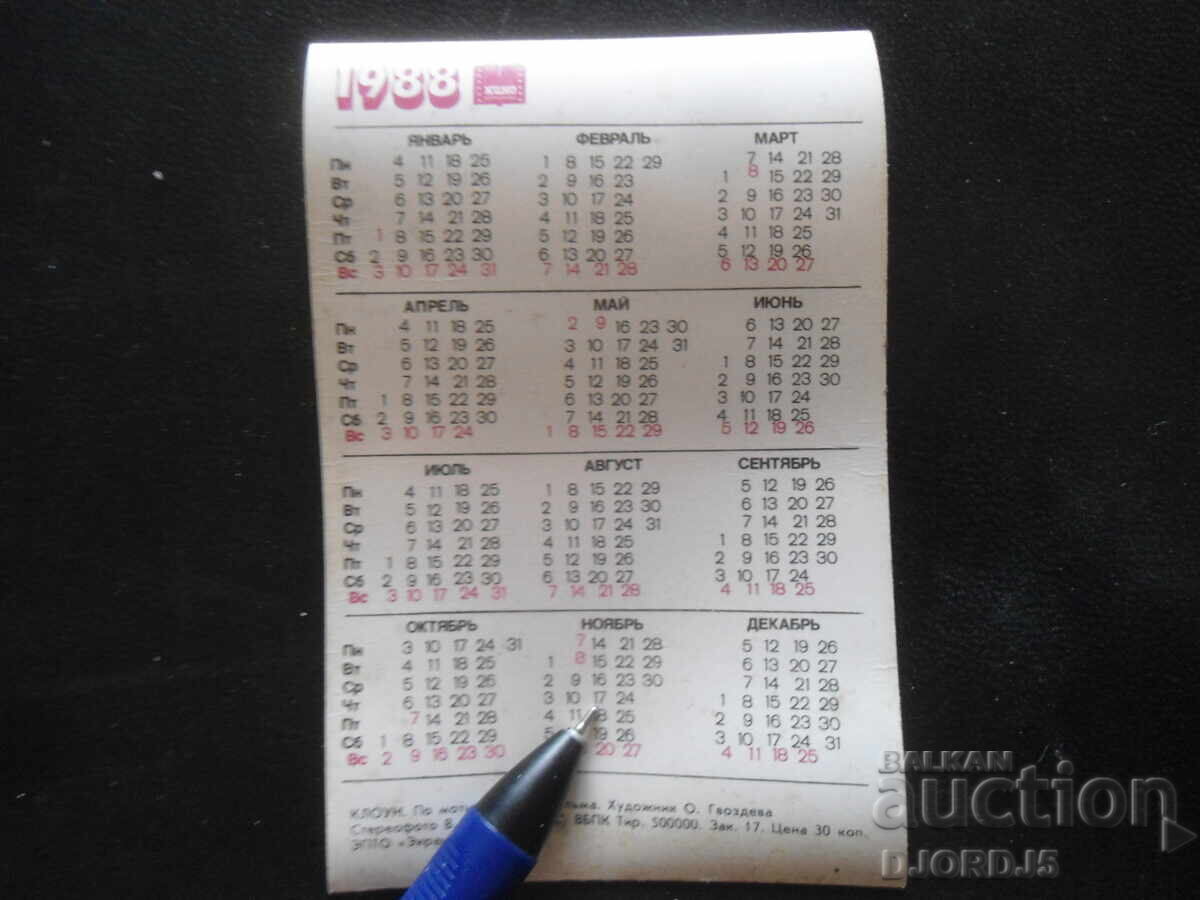 1988 КИНО
ЯНВАРЬ ФЕВРАЛЬ МАРТ
Пн 4 11 18 25 1 8 15 22 29 7 14 21 28
Вт 5 12 19 26 2 9 16 23 1 8 15 22 29
Ср 6 13 20 27 3 10 17 24 2 9 16 23 30
Чт 7 14 21 28 4 11 18 25 3 10 17 24 31
Пт 1 8 15 22 29 5 12 19 26 4 11 18 25
Сб 2 9 16 23 30 6 13 20 27 5 12 19 26
Вс 3 10 17 24 31 7 14 21 28 6 13 20 27
АПРЕЛЬ МАЙ ИЮНЬ
Пн 4 11 18 25 2 9 16 23 30 6 13 20 27
Вт 5 12 19 26 3 10 17 24 31 7 14 21 28
Ср 6 13 20 27 4 11 18 25 1 8 15 22 29
Чт 7 14 21 28 5 12 19 26 2 9 16 23 30
Пт 1 8 15 22 29 6 13 20 27 3 10 17 24
Сб 2 9 16 23 30 7 14 21 28 4 11 18 25
Вс 3 10 17 24 1 8 15 22 29 5 12 19 26
ИЮЛЬ АВГУСТ СЕНТЯБРЬ
Пн 4 11 18 25 1 8 15 22 29 5 12 19 26
Вт 5 12 19 26 2 9 16 23 30 6 13 20 27
Ср 6 13 20 27 3 10 17 24 31 7 14 21 28
Чт 7 14 21 28 4 11 18 25 1 8 15 22 29
Пт 1 8 15 22 29 5 12 19 26 2 9 16 23 30
Сб 2 9 16 23 30 6 13 20 27 3 10 17 24
Вс 3 10 17 24 31 7 14 21 28 4 11 18 25
ОКТЯБРЬ НОЯБРЬ ДЕКАБРЬ
Пн 3 10 17 24 31 7 14 21 28 5 12 19 26
Вт 4 11 18 25 1 8 15 22 29 6 13 20 27
Ср 5 12 19 26 2 9 16 23 30 7 14 21 28
Чт 6 13 20 27 3 10 17 24 1 8 15 22 29
Пт 7 14 21 28 4 11 18 25 2 9 16 23 30
Сб 1 8 15 22 29 5 19 26 3 10 17 24 31
Вс 2 9 16 23 30 20 27 4 11 18 25
КЛОУН. По Художник О. Гвоздева
Стереофото В. ВБПК Тир. 500000. Зак. 17. Цена 30 коп.
ЭПТО
BALKAN
auction
DJORDJ5